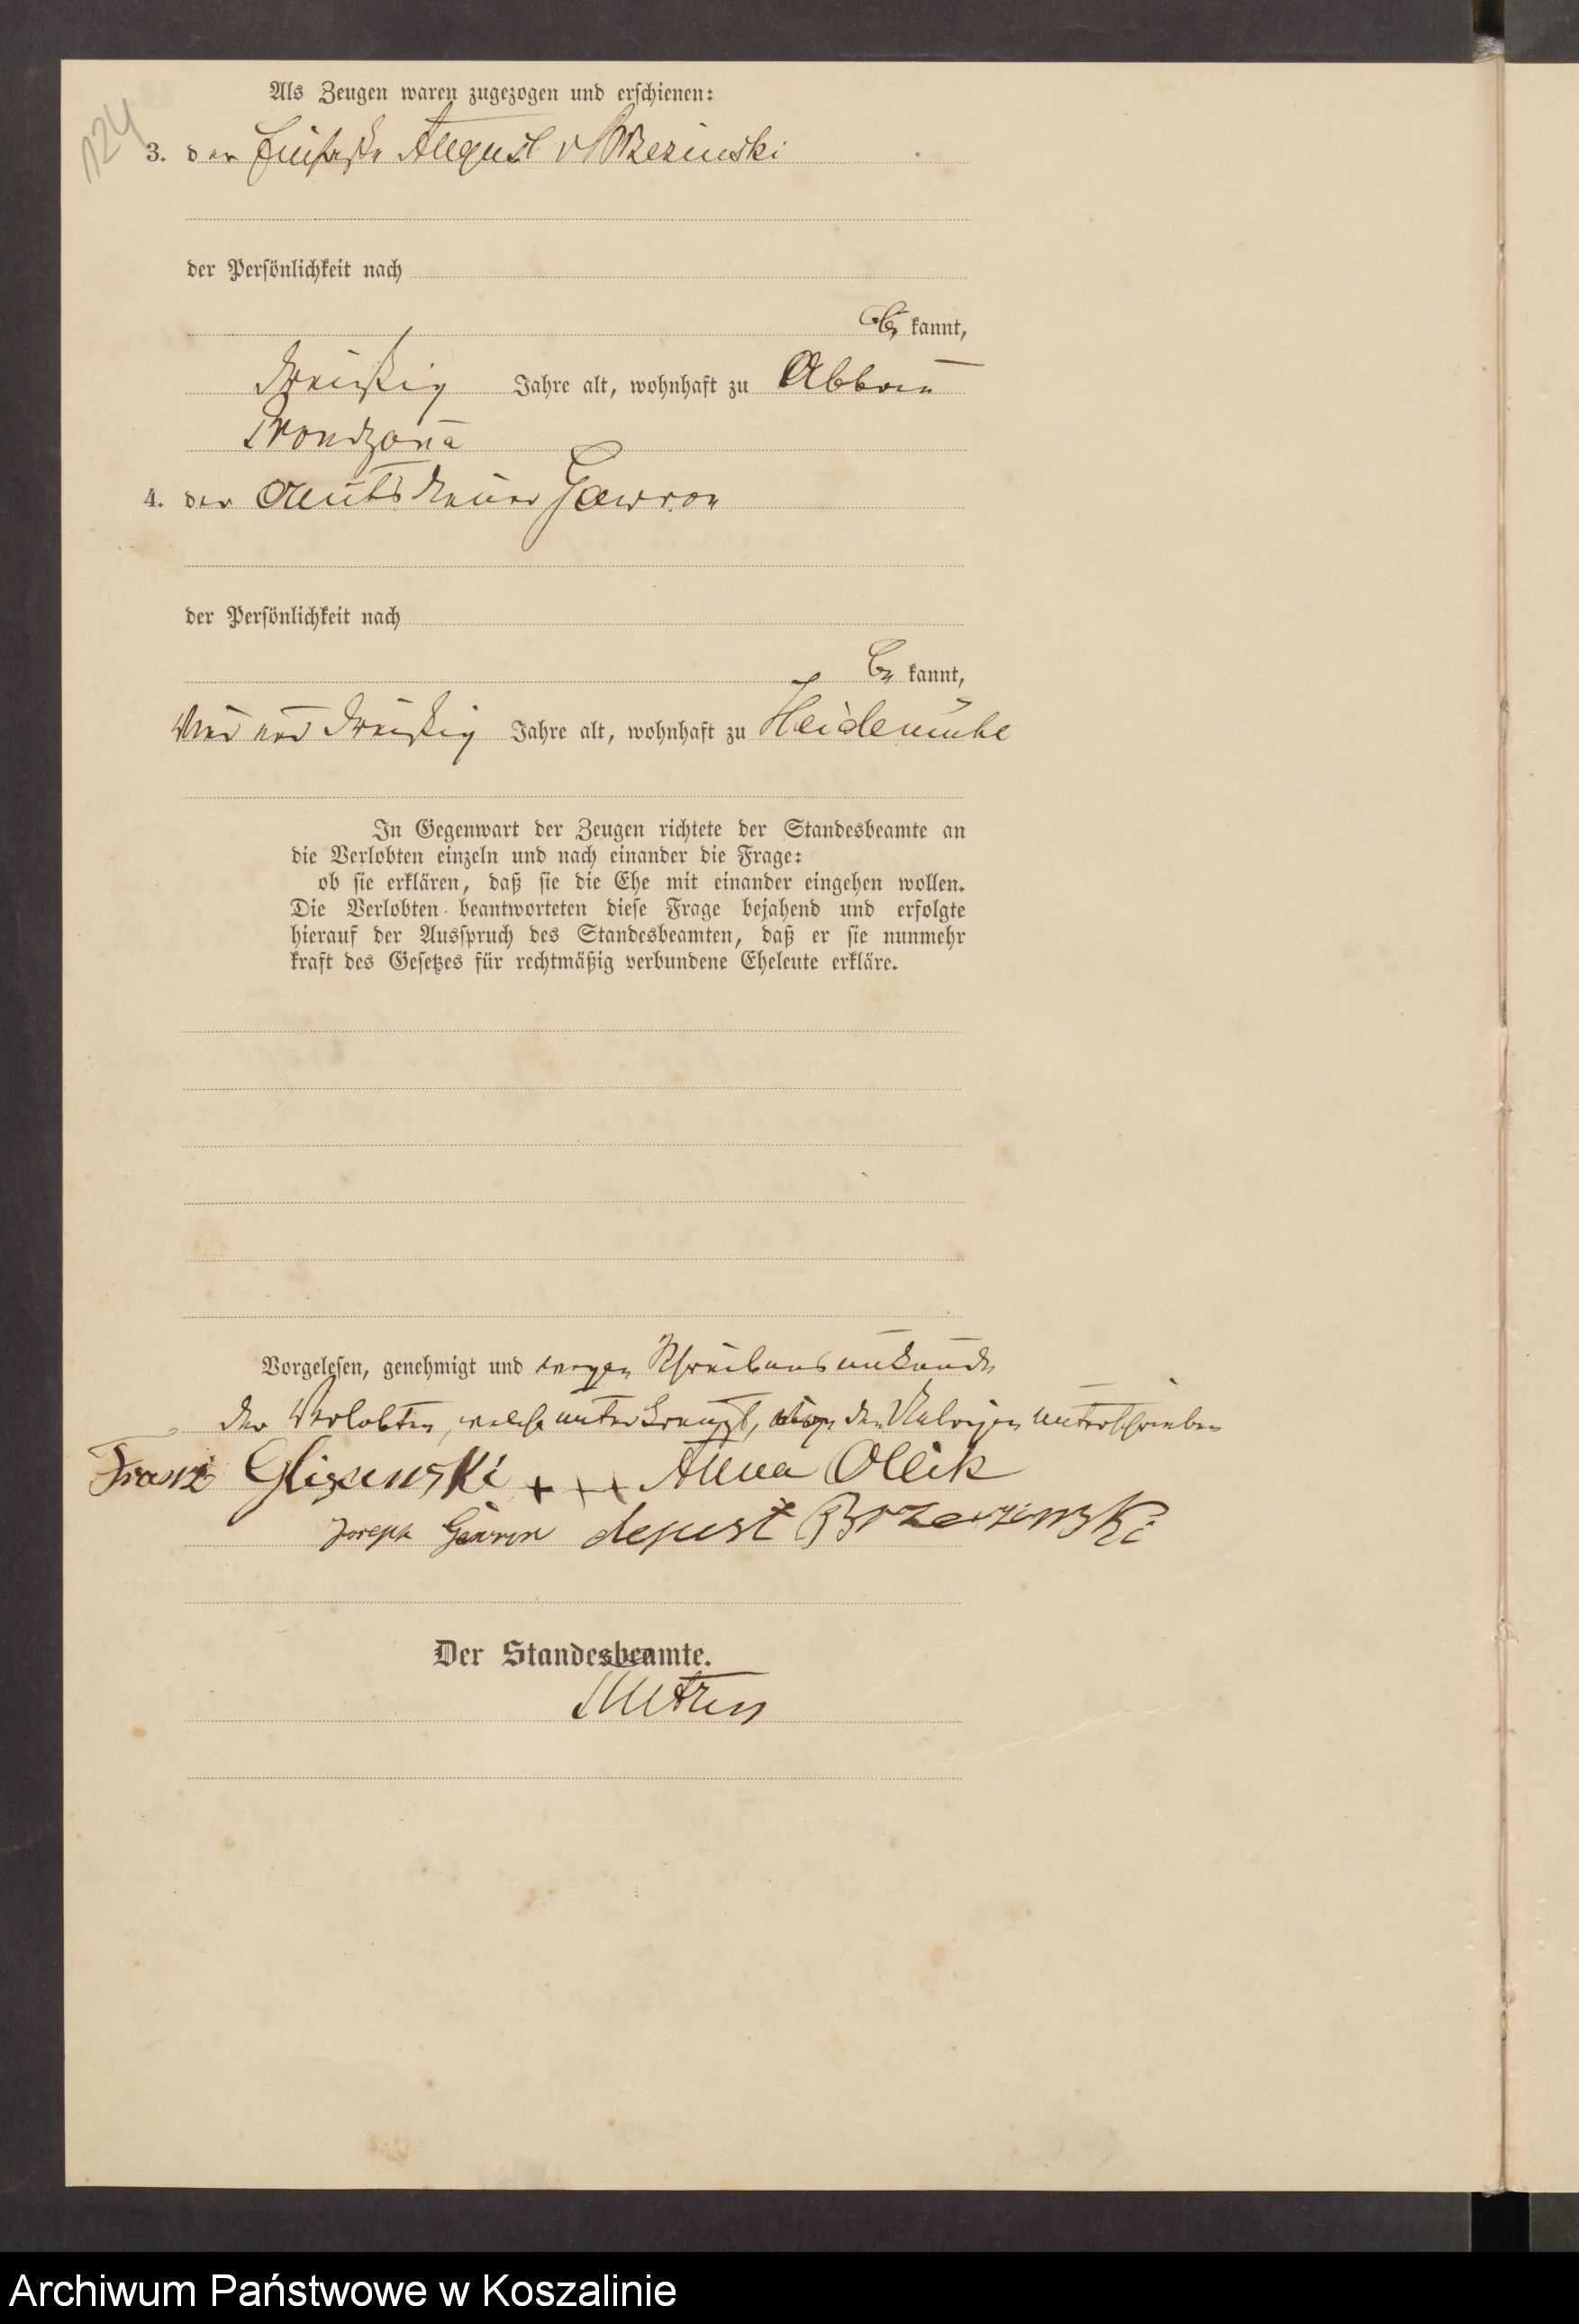 124
Als Zeugen waren zugezogen und erschienen:
3. der August v
der Persönlichkeit nach
be kannt,
dreißig Jahre alt, wohnhaft zu Abbau
Prondzona
4. der Amtsdiener Gawron
der Persönlichkeit nach
be kannt,
vier und dreißig Jahre alt, wohnhaft zu Heidemühl
In Gegenwart der Zeugen richtete der Standesbeamte an
die Verlobten einzeln und nach einander die Frage:
ob sie erklären, daß sie die Ehe mit einander eingehen wollen.
Die Verlobten beantworteten diese Frage bejahend und erfolgte
hierauf der Ausspruch des Standesbeamten, daß er sie nunmehr
kraft des Gesetzes für rechtmäßig verbundene Eheleute erkläre.
Vorgelesen, genehmigt und wegen Schreibensunkunde
der Verlobten, welche unterkreuzt, von den Uebrigen unterschrieben
Franz Glisczinski +++ Anna Ollik
Joseph Gawron
Der Standesbeamte.
Archiwum Państwowe w Koszalinie